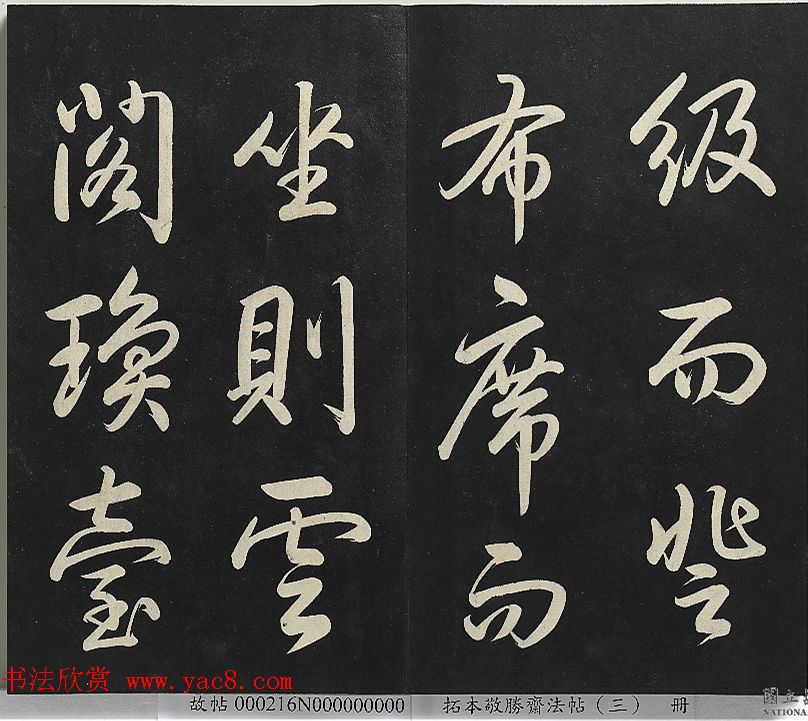 級而登
布席而
坐則雲
閣瓊臺
书法欣赏 www.yac8.com
故帖000216N000000000 拓本敬勝齋法帖（三） 冊
國立
NATIONA